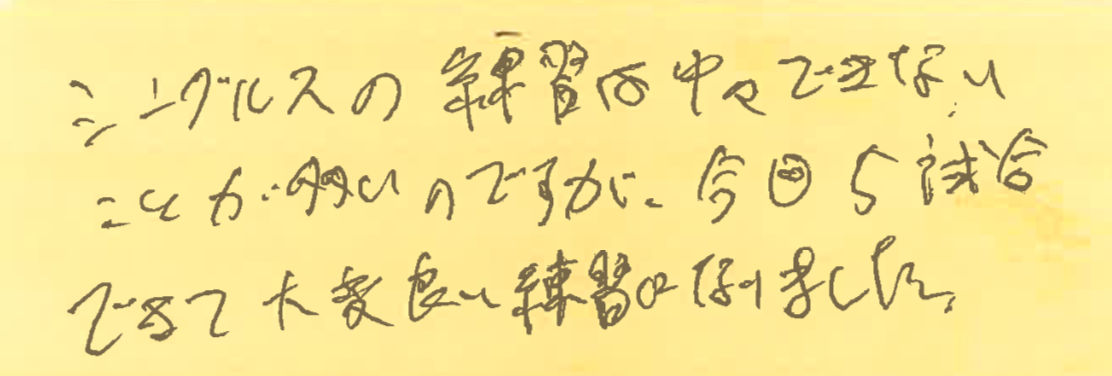 シングルスの練習は中々できない
ことが多いのですが、今回5試合
できて大変良い練習になりました。